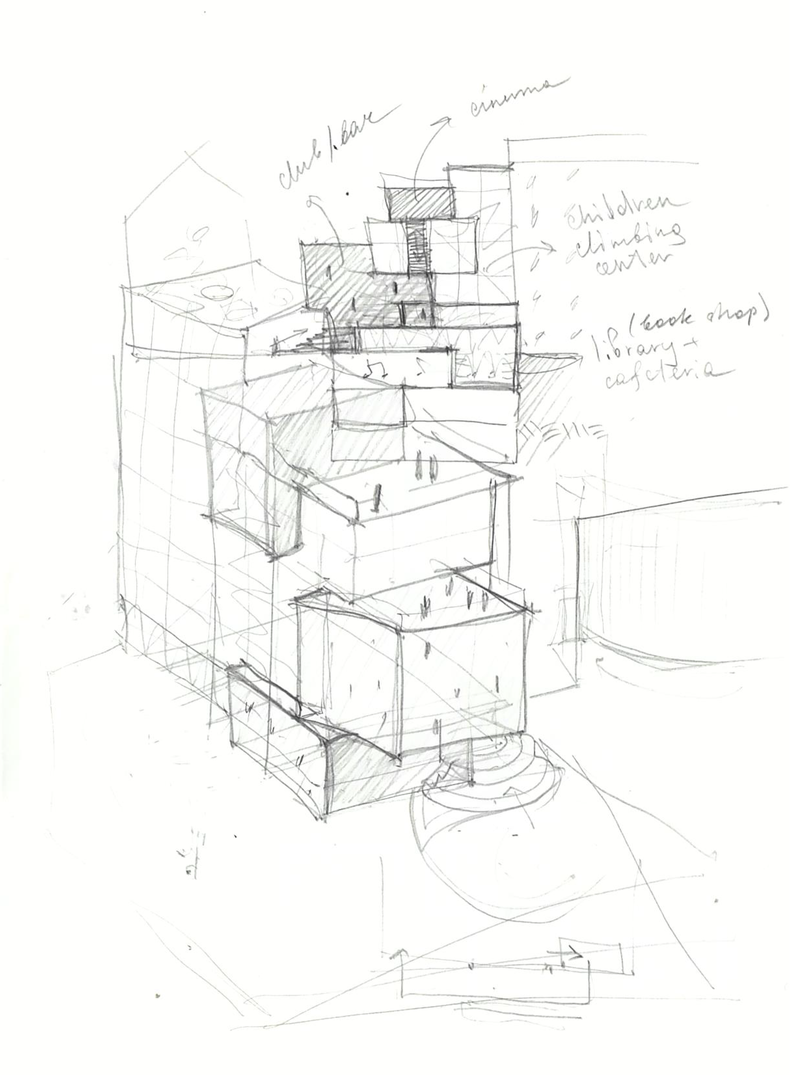 cinema
club/bar
children
climbing
center
(book shop)
library +
cafeteria